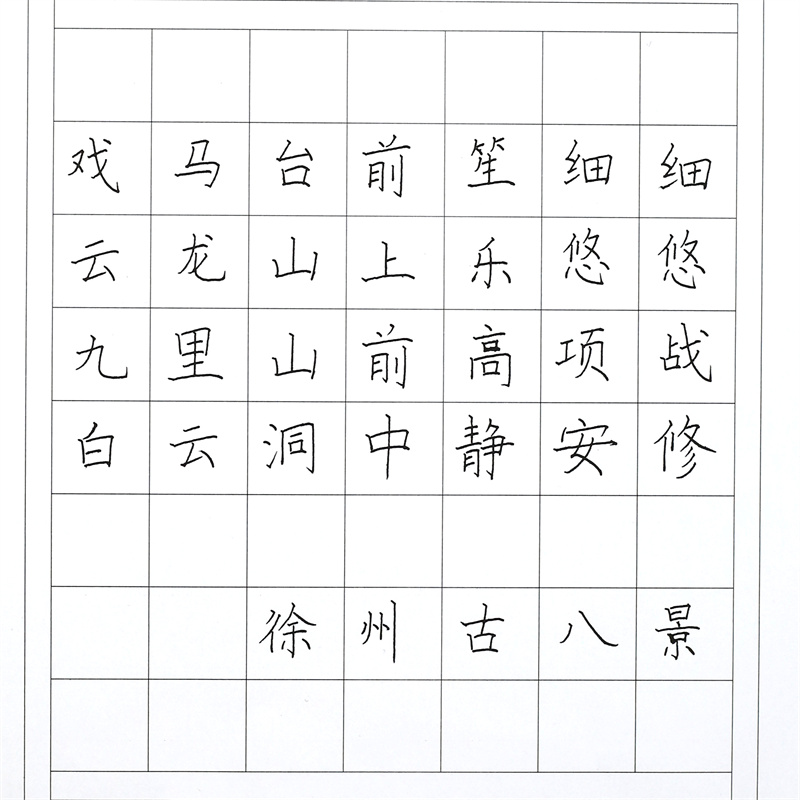 戏马台前笙细细
云龙山上乐悠悠
九里山前高项战
白云洞中静安修
徐州古八景